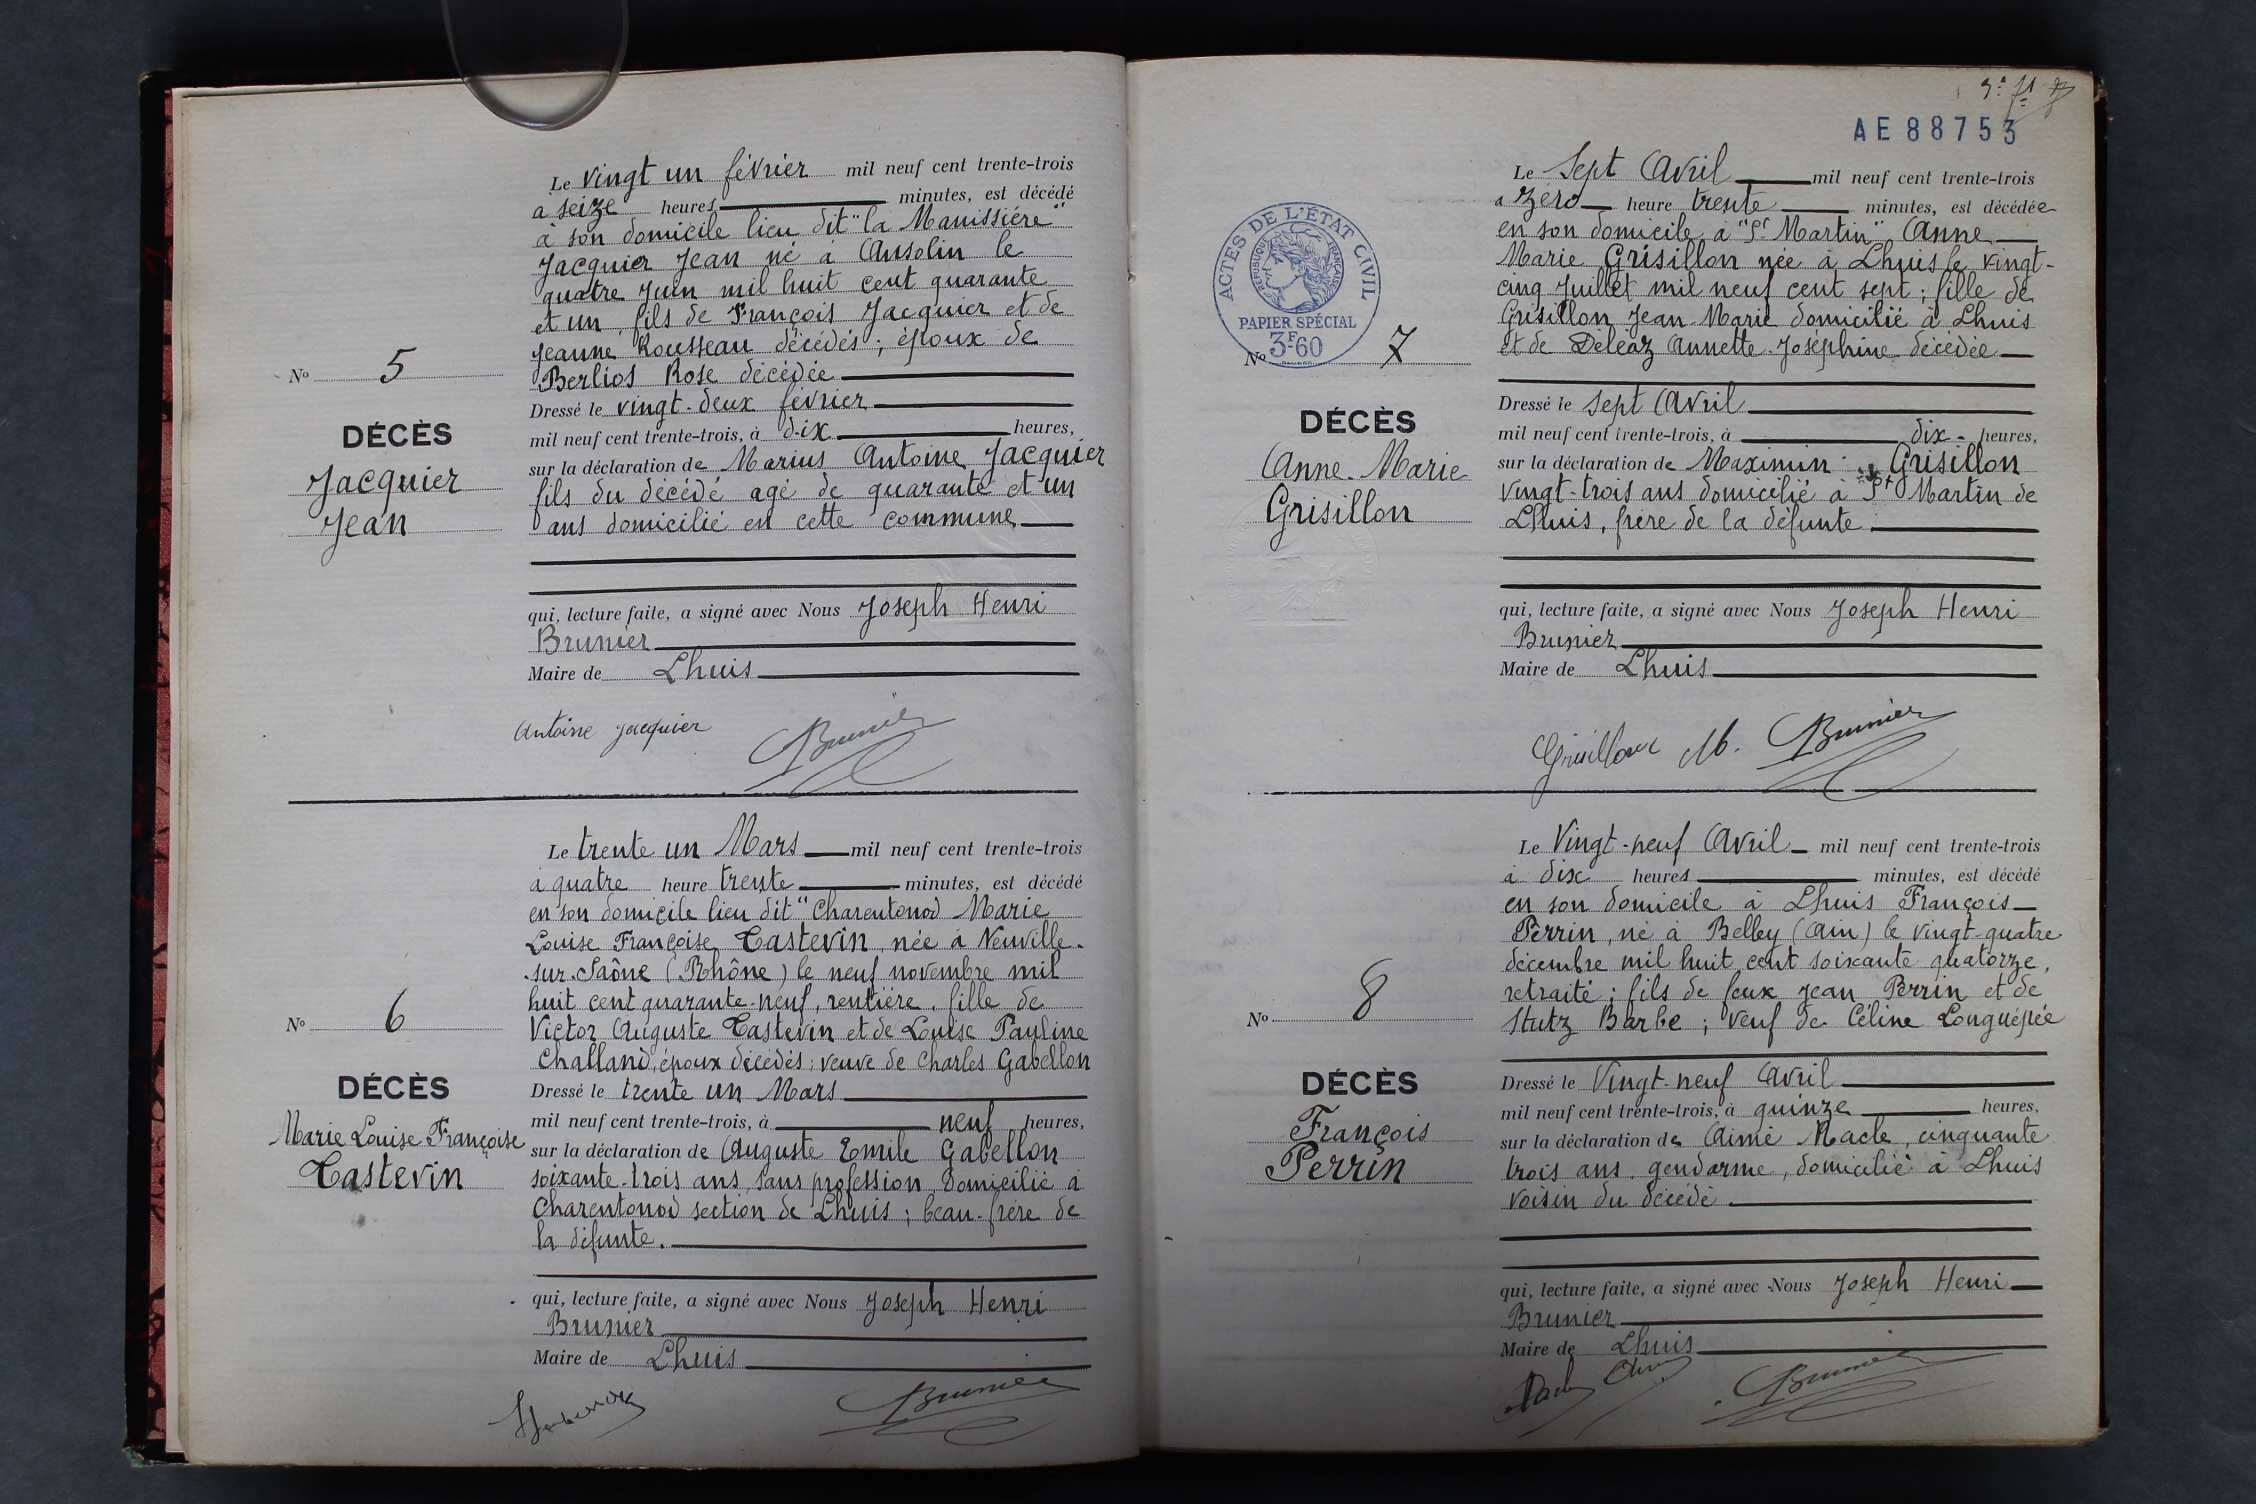 Le vingt un février mil neuf cent trente-trois
a seize heures minutes, est décédé
à son domicile lieu dit "la Manissiére"
Jacquier Jean né à Ansolin le
quatre Juin mil huit cent quarante
et un, fils de François Jacquier et de
Jeanne Rousseau décédés; époux de
Berlios Rose décédée
Nº 5
DÉCÈS
Jacquier
Jean
Dressé le vingt-deux février
mil neuf cent trente-trois, à dix heures,
sur la déclaration de Marius Antoine Jacquier
fils du décédé agé de quarante et un
ans domicilié en cette commune
qui, lecture faite, a signé avec Nous Joseph Henri
Brunier
Maire de Lhuis
Antoine Jacquier Brunier
Le trente un Mars mil neuf cent trente-trois
à quatre heure trente minutes, est décédé
en son domicile lieu dit "Charentonod Marie
Louise Françoise Tastevin, née à Neuville-
-sur-Saône (Rhône) le neuf novembre mil
huit cent quarante-neuf, rentiére, fille de
Victor Auguste Tastevin et de Louise Pauline
Challand, époux décédés; veuve de Charles Gabellon
Nº 6
DÉCÈS
Marie Louise Françoise
Tastevin
Dressé le trente un Mars
mil neuf cent trente-trois, à neuf heures,
sur la déclaration de Auguste Emile Gabellon
soixante-trois ans, sans profession, domicilié à
Charentonod section de Lhuis; beau-frère de
la défunte.
qui, lecture faite, a signé avec Nous Joseph Henri
Brunier
Maire de Lhuis
Brunier
AE 88753
Le Sept Avril mil neuf cent trente-trois
a zéro heure trente minutes, est décédée
en son domicile à "St Martin" Anne
Marie Grisillon née à Lhuis le vingt-
cinq Juillet mil neuf cent sept; fille de
Grisillon Jean-Marie domicilié à Lhuis
et de Déléaz Annette-Joséphine décédée
ACTES DE L'ÉTAT CIVIL
RÉPUBLIQUE FRANÇAISE
PAPIER SPÉCIAL
3F60
Nº 7
DÉCÈS
Anne-Marie
Grisillon
Dressé le sept Avril
mil neuf cent trente-trois, à dix heures,
sur la déclaration de Maximin Grisillon
vingt-trois ans domicilié à St Martin de
Lhuis, frère de la défunte
qui, lecture faite, a signé avec Nous Joseph Henri
Brunier
Maire de Lhuis
Grisillon M. Brunier
Le Vingt-neuf Avril mil neuf cent trente-trois
à dix heures minutes, est décédé
en son domicile à Lhuis François
Perrin, né à Belley (Ain) le vingt-quatre
décembre mil huit cent soixante quatorze,
retraité; fils de feux Jean Perrin et de
Stutz Barbe; veuf de Céline Longuépée
Nº 8
DÉCÈS
François
Perrin
Dressé le Vingt-neuf Avril
mil neuf cent trente-trois, à quinze heures,
sur la déclaration de Aimé Nacle, cinquante
trois ans, gendarme, domicilié à Lhuis
voisin du décédé
qui, lecture faite, a signé avec Nous Joseph Henri
Brunier
Maire de Lhuis
Brunier